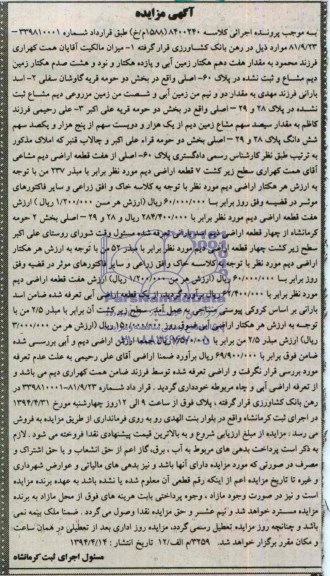 آگهی مزایده
به موجب پرونده اجرائی کلاسه ۸۴۰۰۲۴۰ (۱۵۸۸م/خ) طبق قرارداد شماره ۳۳۹۸۱۰۰۰۱–
۸۱/۹/۲۳ موارد ذیل در رهن بانک کشاورزی قرار گرفته ۱- میزان مالکیت آقایان همت کهراری
فرزند محمود به مقدار هفت دهم هکتار زمین آبی و یازده هکتار و نود و هشت صدم هکتار زمین
دیم مشاع و ثبت نشده در پلاک ۶۰- اصلی واقع در بخش دو حومه قریه گاوشان سفلی ۲- اسد
بارانی فرزند مهدی به مقدار دو و نیم من زمین آبی و شصت من زمین مزروعی دیم مشاع ثبت
نشده در پلاک ۲۸ و ۲۹ - اصلی واقع در بخش دو حومه قریه علی اکبر ۳- علی رحیمی فرزند
کاظم به مقدار سیصد سهم مشاع زمین دیم از یک هزار و دویست سهم از پنج هزار و یکصد سهم
شش دانگ پلاک ۲۸ و ۲۹ - اصلی بخش دو حومه قراء علی اکبر و چالاب قنبر که املاک مذکور
به ترتیب طبق نظر کارشناس رسمی دادگستری پلاک ۶۰- اصلی از هفت قطعه اراضی دیم مشاعی
آقای همت کهراری سطح زیر کشت ۷ قطعه اراضی دیم مورد نظر برابر با مبلغ ۲۳۷ من با توجه
به ارزش هر هکتار اراضی دیم مورد نظر با توجه به کلاسه خاک و افق زراعی و سایر فاکتورهای
موثر در قضیه وفق روز برابر با ۶۰/۰۰۰/۰۰۰ ریال (ارزش هر من ۱/۲۰۰/۰۰۰ ریال) ارزش
هفت قطعه اراضی دیم مورد نظر برابر با ۲۸۴/۴۰۰/۰۰۰ ریال و ۲۸ و ۲۹ - اصلی بخش ۲ حومه
کرمانشاه از چهار قطعه اراضی تعرفه شده مسئول وقت شورای روستای علی اکبر
سطح زیر کشت چهار قطعه اراضی دیم مورد نظر برابر با مبلغ ۵۲ من با توجه به ارزش هر هکتار
اراضی دیم مورد نظر با توجه به کلاسه خاک وافق زراعی و سایر فاکتورهای موثر در قضیه وفق
روز برابر با ۶۰/۰۰۰/۰۰۰ ریال (ارزش هر من ۱/۲۰۰/۰۰۰ ریال) ارزش هفت قطعه اراضی دیم
مورد نظر برابر با ۶۲/۴۰۰/۰۰۰ ریال برآورد گردید از یک قطعه اراضی آبی تعرفه شده ضامن اسد
بارانی بر اساس کروکی پیوستی به عمل آمد سطح زیر کشت آن برابر با مبلغ ۲/۵ من با
توجه به ارزش هر هکتار اراضی آبی وفق روز ۱۵۰/۰۰۰/۰۰۰ ریال (ارزش هر من ۳/۰۰۰/۰۰۰
ریال) ارزش مبلغ ۲/۵ من برابر با ۷/۵۰۰/۰۰۰ ریال جمعا اراضی دیم و آبی بررسی شده
ضامن فوق برابر با ۶۹/۹۰۰/۰۰۰ ریال برآورد ضمنا اراضی آقای علی رحیمی به علت عدم تعرفه
مورد بررسی قرار نگرفت و اراضی تعرفه شده توسط فرزند ضامن همت کهراری دیم می باشد و
از تعرفه اراضی آبی و چاه مربوطه خودداری گردید. قرار داد شماره ۳۳۹۸۱۰۰۰۱–۸۱/۹/۲۳ در
رهن بانک کشاورزی قرار گرفته، پلاک فوق از ساعت ۹ الی ۱۲ روز چهارشنبه مورخ ۱۳۹۴/۴/۳۱
در اجرای ثبت کرمانشاه واقع در بلوار بنت الهدی رو به روی فرمانداری از طریق مزایده به فروش
می رسد. مزایده از مبلغ ارزیابی شروع و به بالاترین قیمت پیشنهادی نقدا فروخته می شود. لازم
به ذکر است پرداخت بدهی های مربوط به آب، برق، گاز اعم از حق انشعاب و یا حق اشتراک و
مصرف در صورتی که مورد مزایده دارای آنها باشد و نیز بدهی های مالیاتی و عوارض شهرداری
و غیره تا تاریخ مزایده اعم از اینکه رقم قطعی آن معلوم شده یا نشده باشد به عهده برنده مزایده
است و نیز در صورت وجود مازاد، وجوه پرداختی بابت هزینه های فوق از محل مازاد به برنده
مزایده مسترد خواهد شد و نیم عشر و حق مزایده نقدا وصول می گردد. ضمنا ملک بیمه نمی
باشد و چنانچه روز مزایده تعطیل رسمی گردد، مزایده روز اداری بعد از تعطیلی در همان ساعت
و مکان مقرر برگزار خواهد شد. ۳۲۵۹/م الف/۱۲ تاریخ انتشار: ۱۳۹۴/۴/۱۴
مسئول اجرای ثبت کرمانشاه